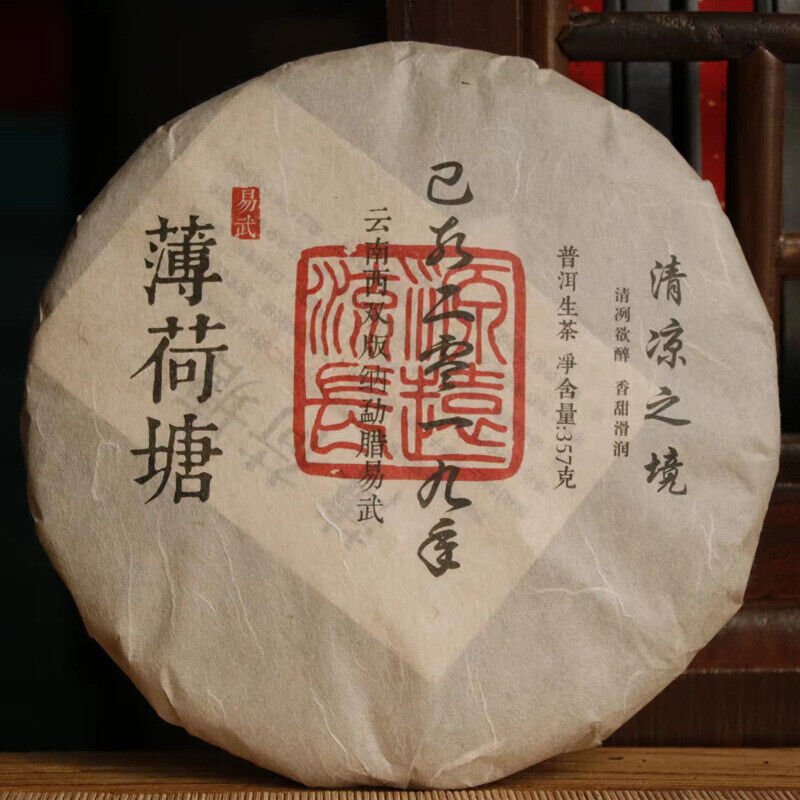 清凉之境
清冽欲醉 香甜滑润
普洱生茶 凈含量:357克
己亥二零一九年
源遠
流長
云南西双版纳勐腊易武
易武
薄荷塘